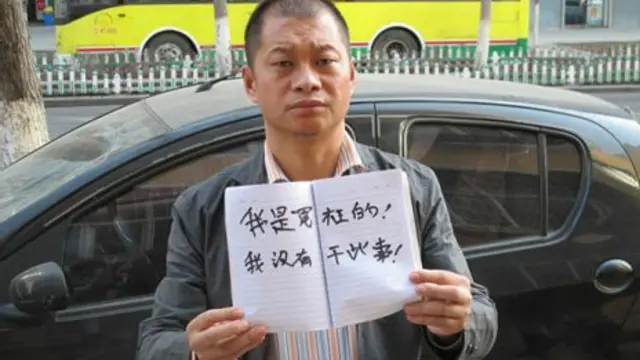 我是冤枉的!
我没有干此案!